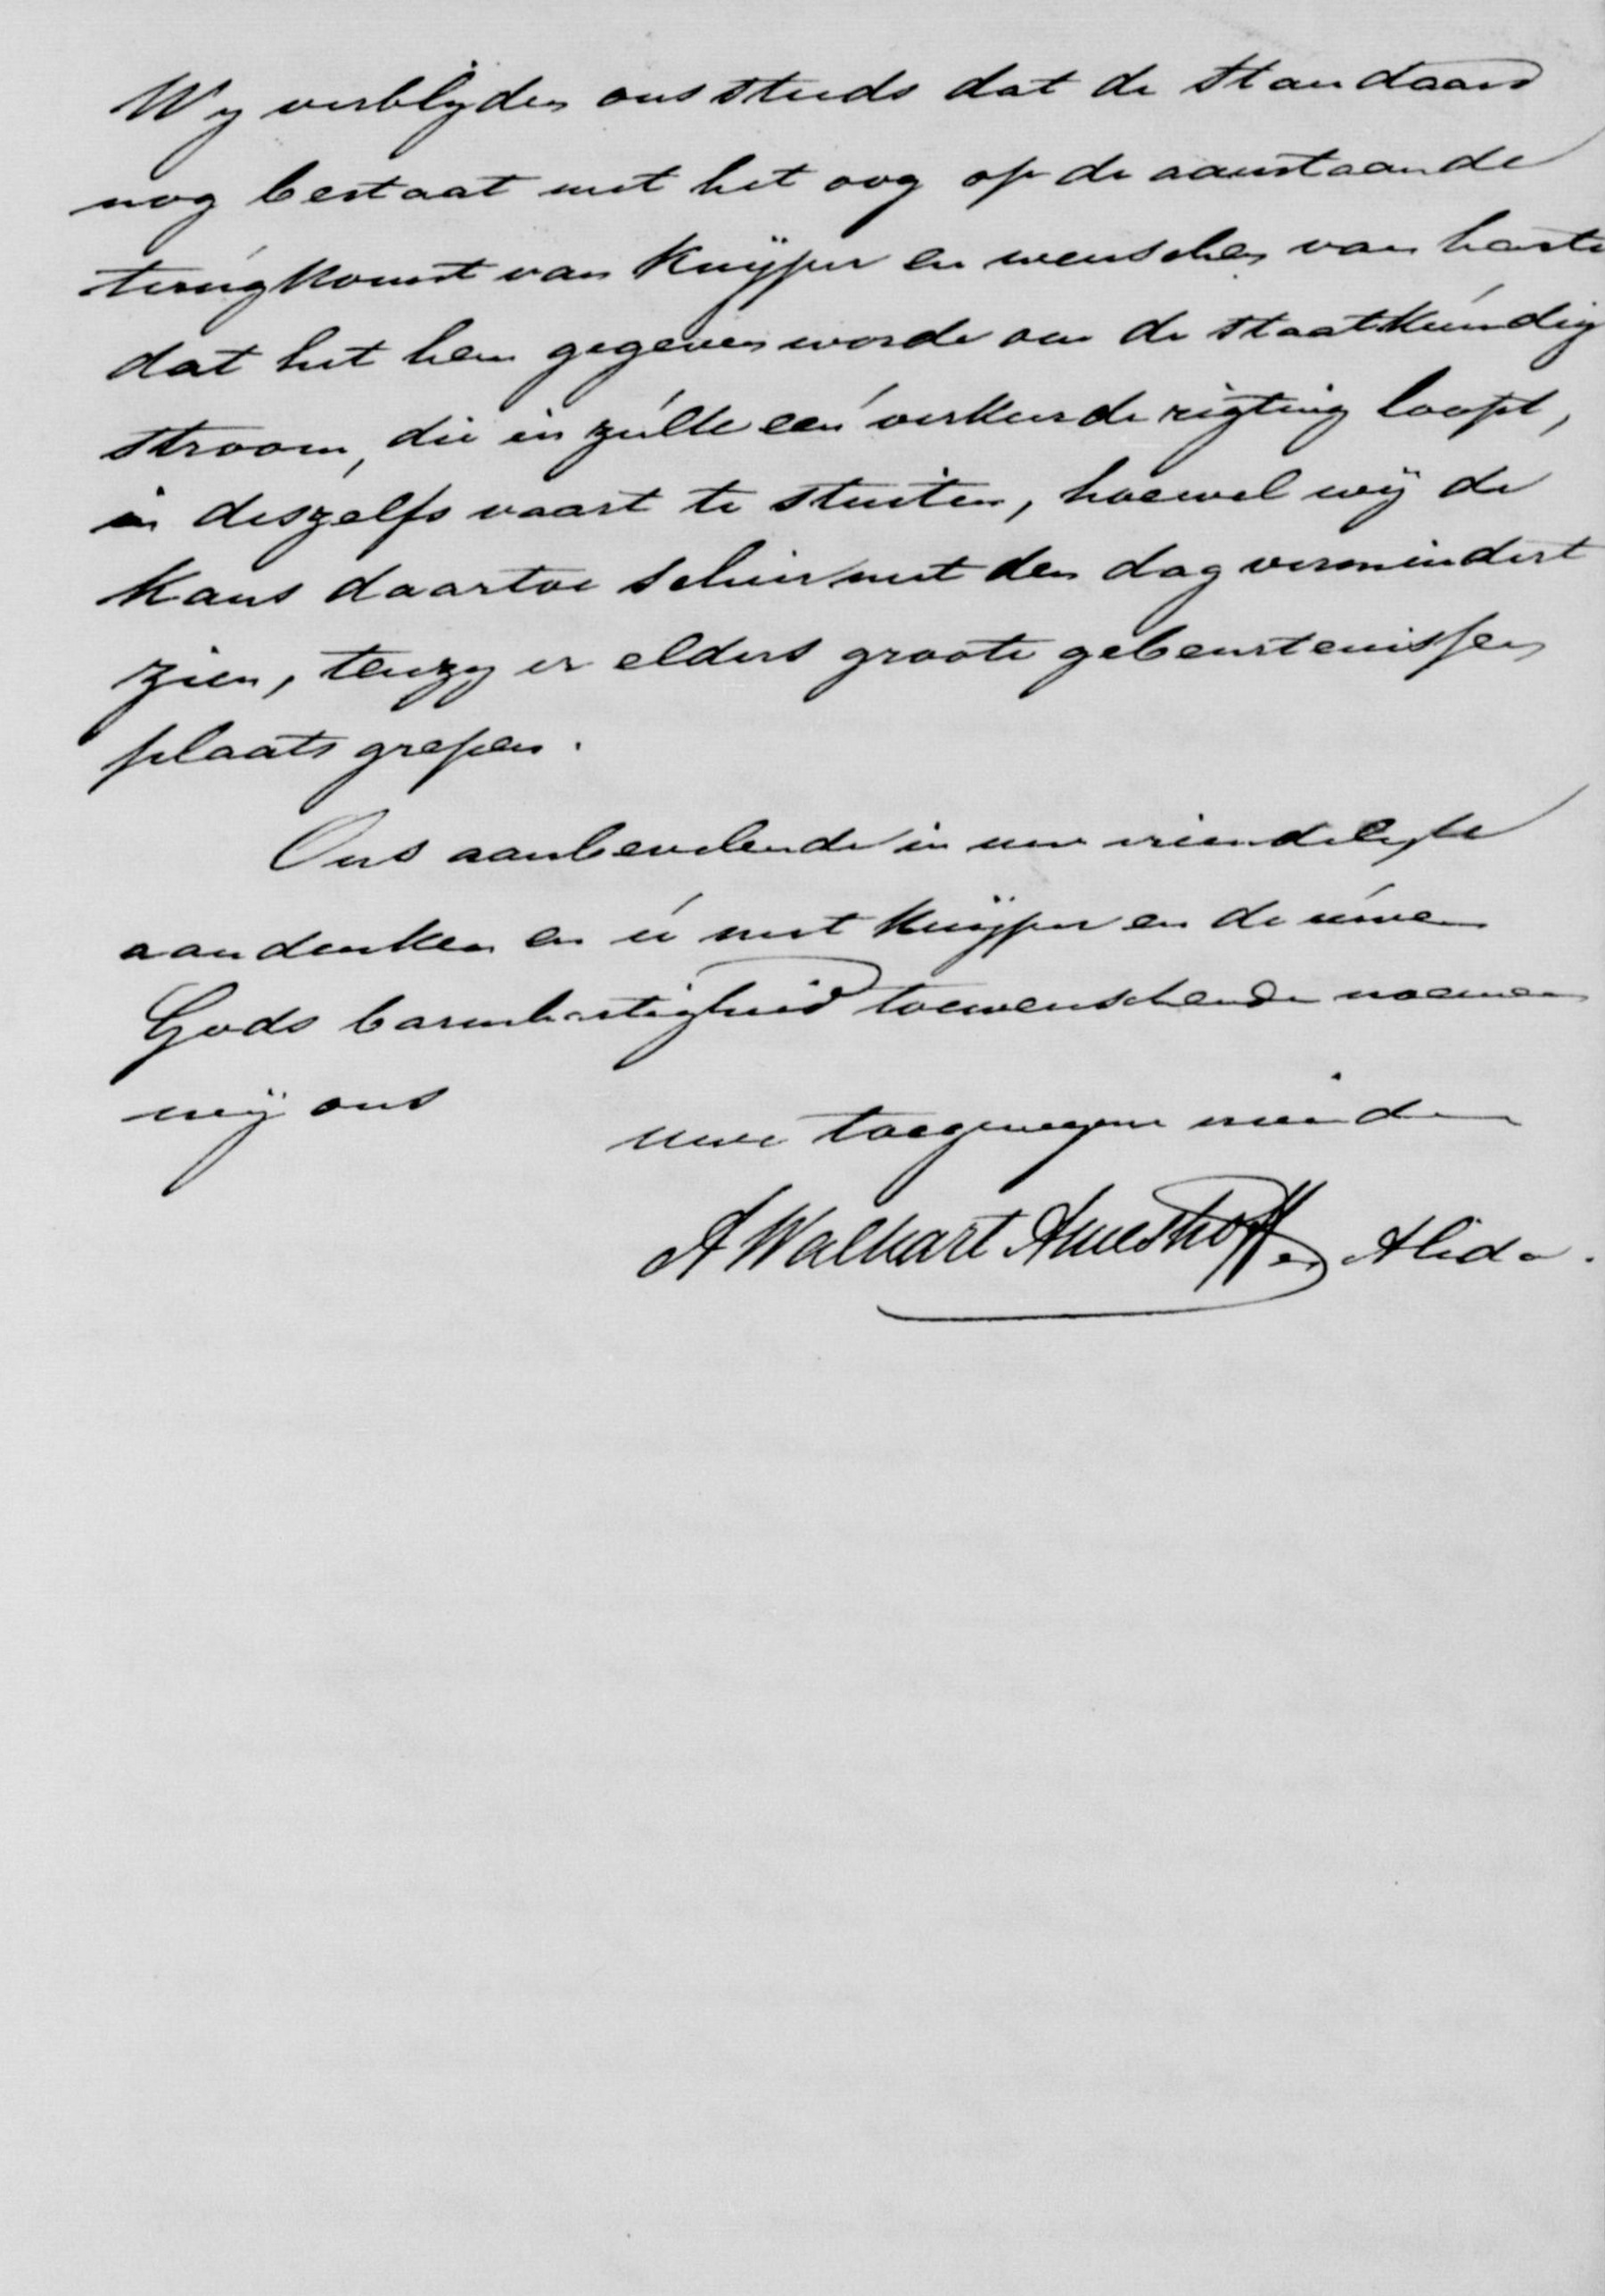 Wy verblyden ons steeds dat de standaard
nog bestaat met het oog op de aanstaande
terugkomst van Kuÿper en wenschen van harte
dat het hem gegeven worde om de staatkundig
stroom, die in zulk een verkeerde rigting loopt,
in deszelfs vaart te stuiten, hoewel wÿ de
kans daartoe schier met den dag vermindert
zien, tenzy er elders groote gebeurtenissen
plaats grepen.
Ons aanbevelende in uw vriendelyke
aandenken en u met Kuÿper en de uwen
Gods barmhartigheid toewenschende noemen
wÿ ons
uwe toegenegene vrienden
A Walkart Ameshoff en Alida.